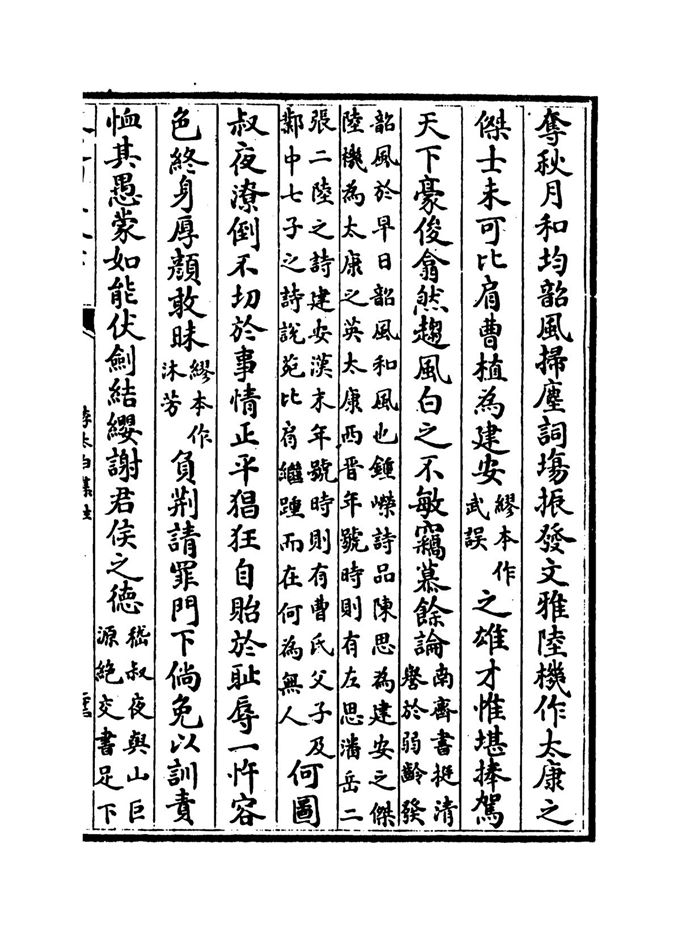 奪秋月和均韶風掃塵詞塲振發文雅陸機作太康之
傑士未可比肩曹植為建安繆本作武誤之雄才惟堪捧駕
天下豪俊翕然趨風白之不敏竊慕餘論南齊書挺清譽於弱齡發
韶風於早日韶風和風也鍾嶸詩品陳思為建安之傑
陸機為太康之英太康西晉年號時則有左思潘岳二
張二陸之詩建安漢末年號時則有曹氏父子及
鄴中七子之詩説苑比肩繼踵而在何為無人何圖
叔夜潦倒不切於事情正平猖狂自貽於恥辱一忤容
色終身厚顔敢昧繆本作沐芳負荆請罪門下倘免以訓責
恤其愚蒙如能伏劍結纓謝君侯之德嵇叔夜與山巨源絶交書足下
李太白集注